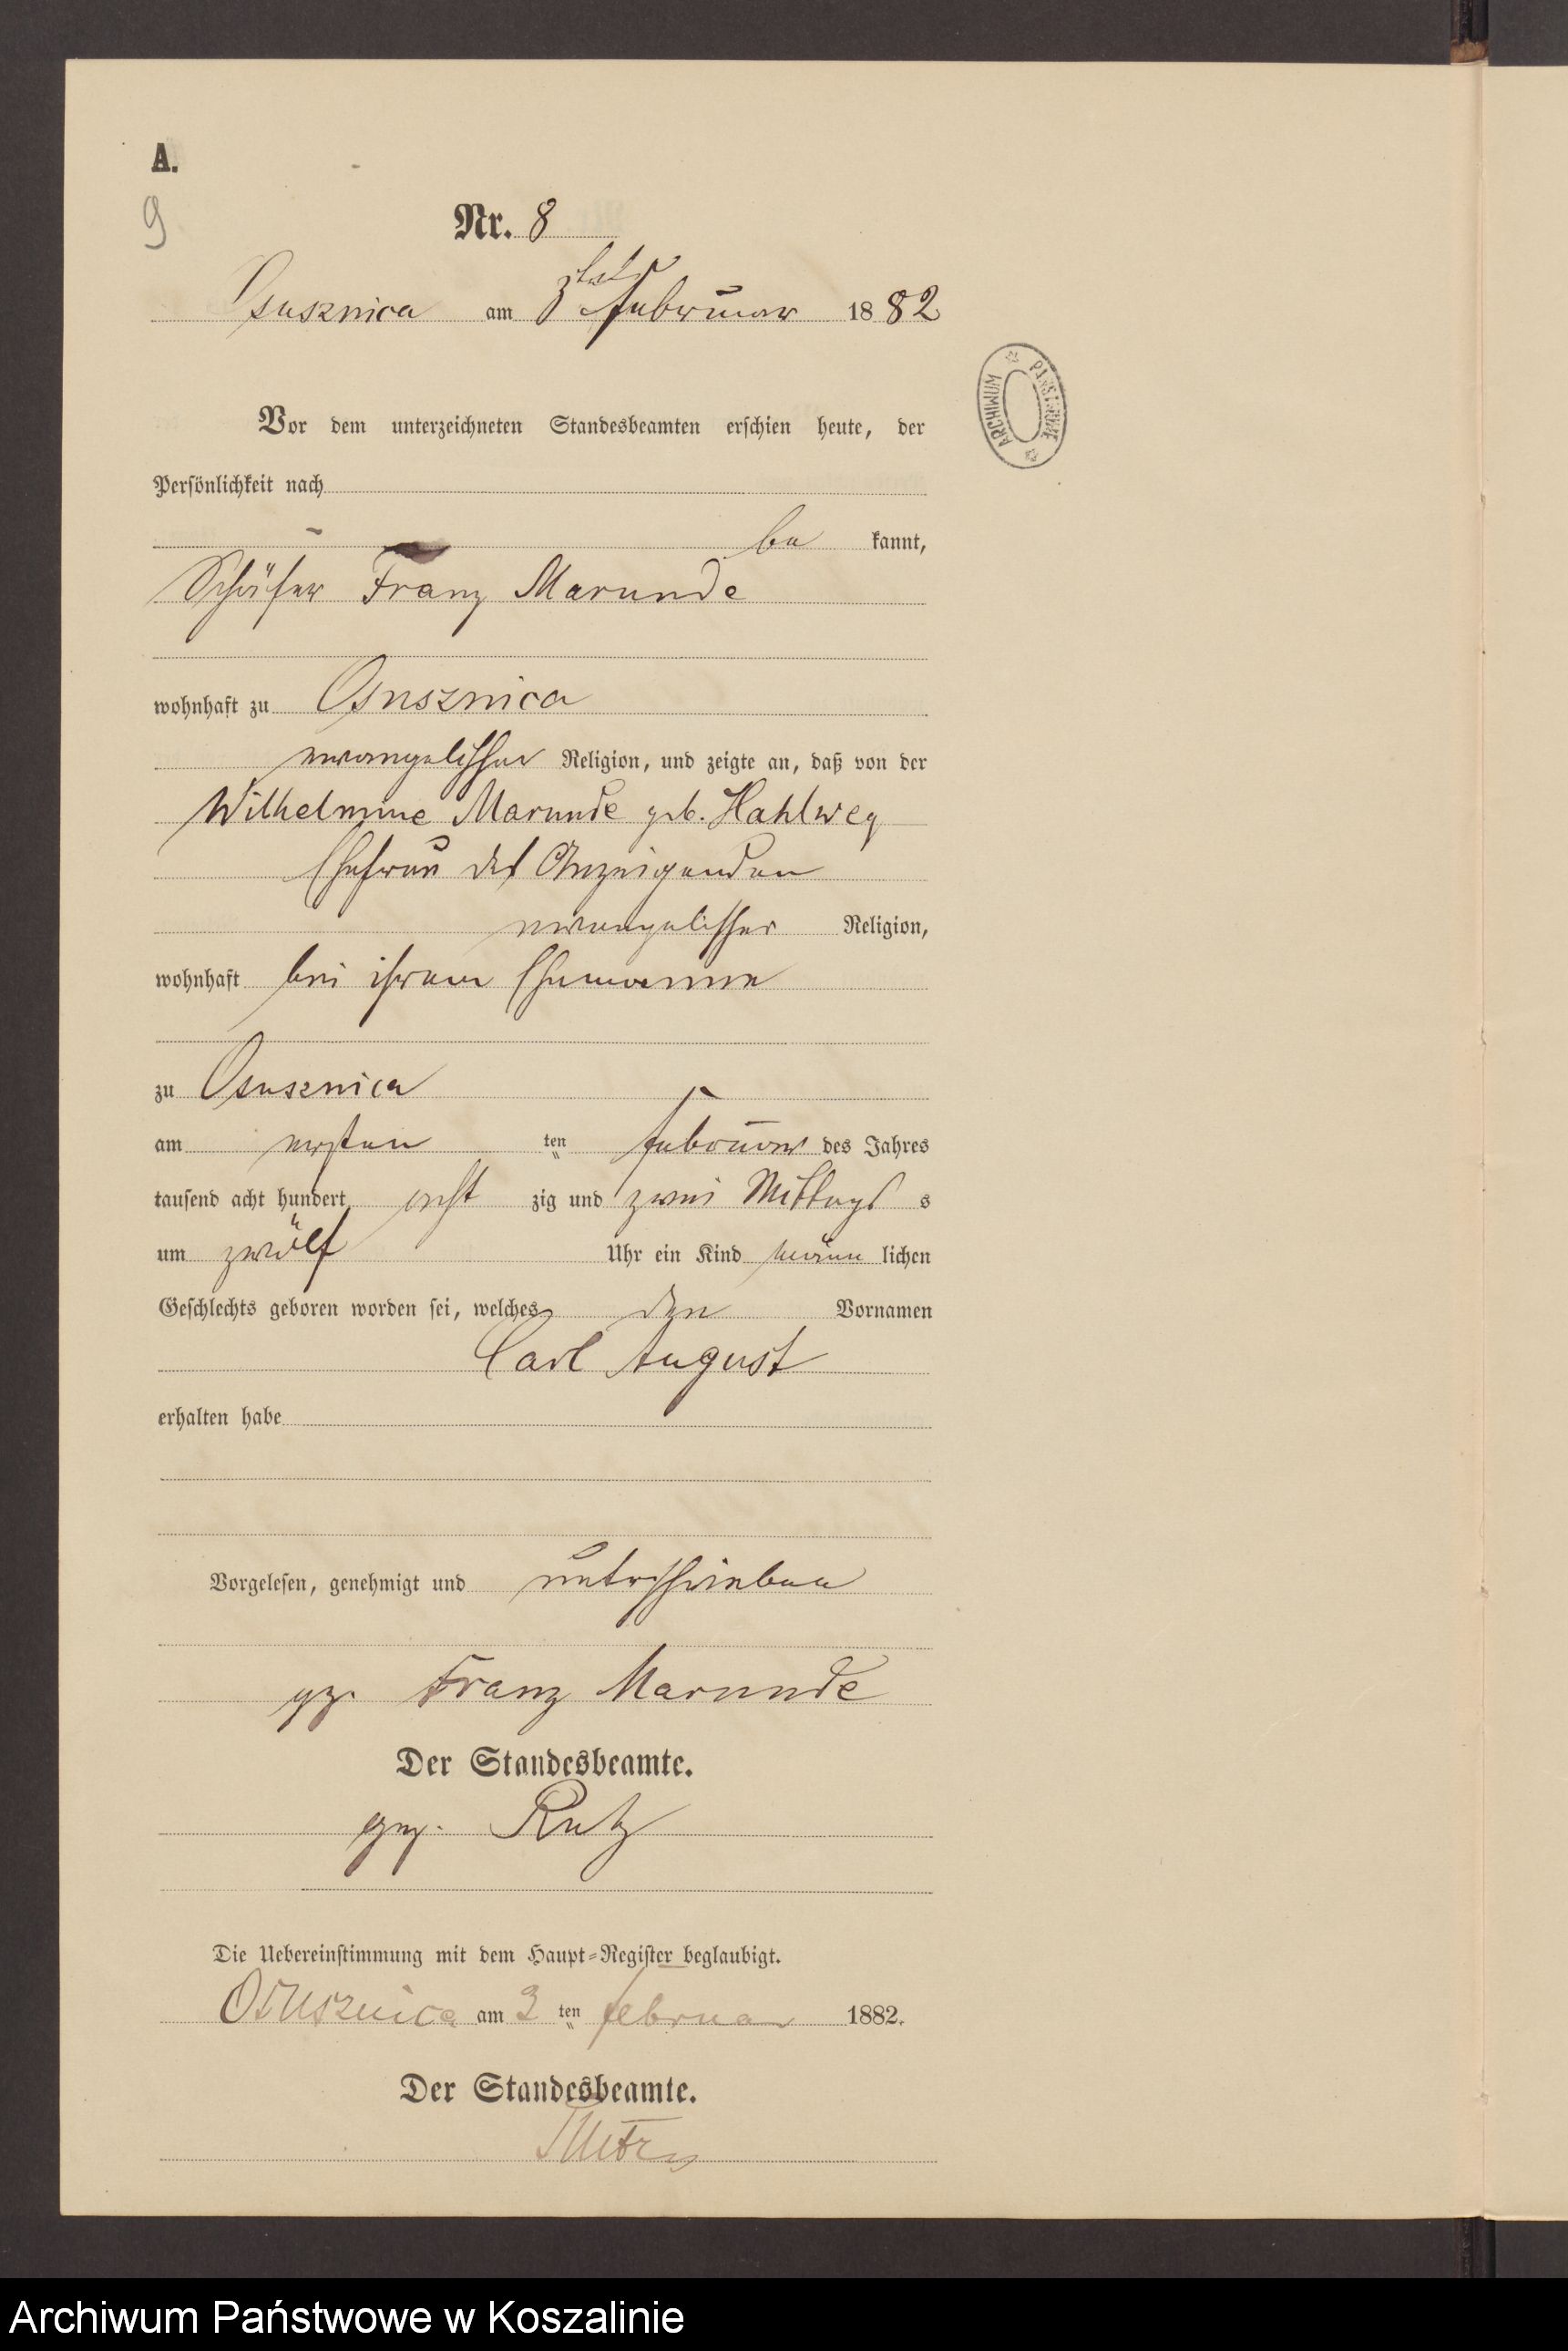 A.
9
Nr. 8
Osusznica am 3ten Februar 1882
ARCHIWUM PAŃSTWOWE
Vor dem unterzeichneten Standesbeamten erschien heute, der
Persönlichkeit nach
be kannt,
Schäfer Franz Marunde
wohnhaft zu Osusznica
evangelischer Religion, und zeigte an, daß von der
Wilhelmine Marunde geb. Hahlweg
Ehefrau des Anzeigenden
evangelischer Religion,
wohnhaft bei ihrem Ehemanne
zu Osusznica
am ersten ten Februar des Jahres
tausend acht hundert acht zig und zwei Mittags s
um zwölf Uhr ein Kind männ lichen
Geschlechts geboren worden sei, welches den Vornamen
Carl August
erhalten habe
Vorgelesen, genehmigt und unterschrieben
gz. Franz Marunde
Der Standesbeamte.
gez. Rutz
Die Uebereinstimmung mit dem Haupt-Register beglaubigt.
Osusznica am 3 ten Februar 1882.
Der Standesbeamte.
Archiwum Państwowe w Koszalinie